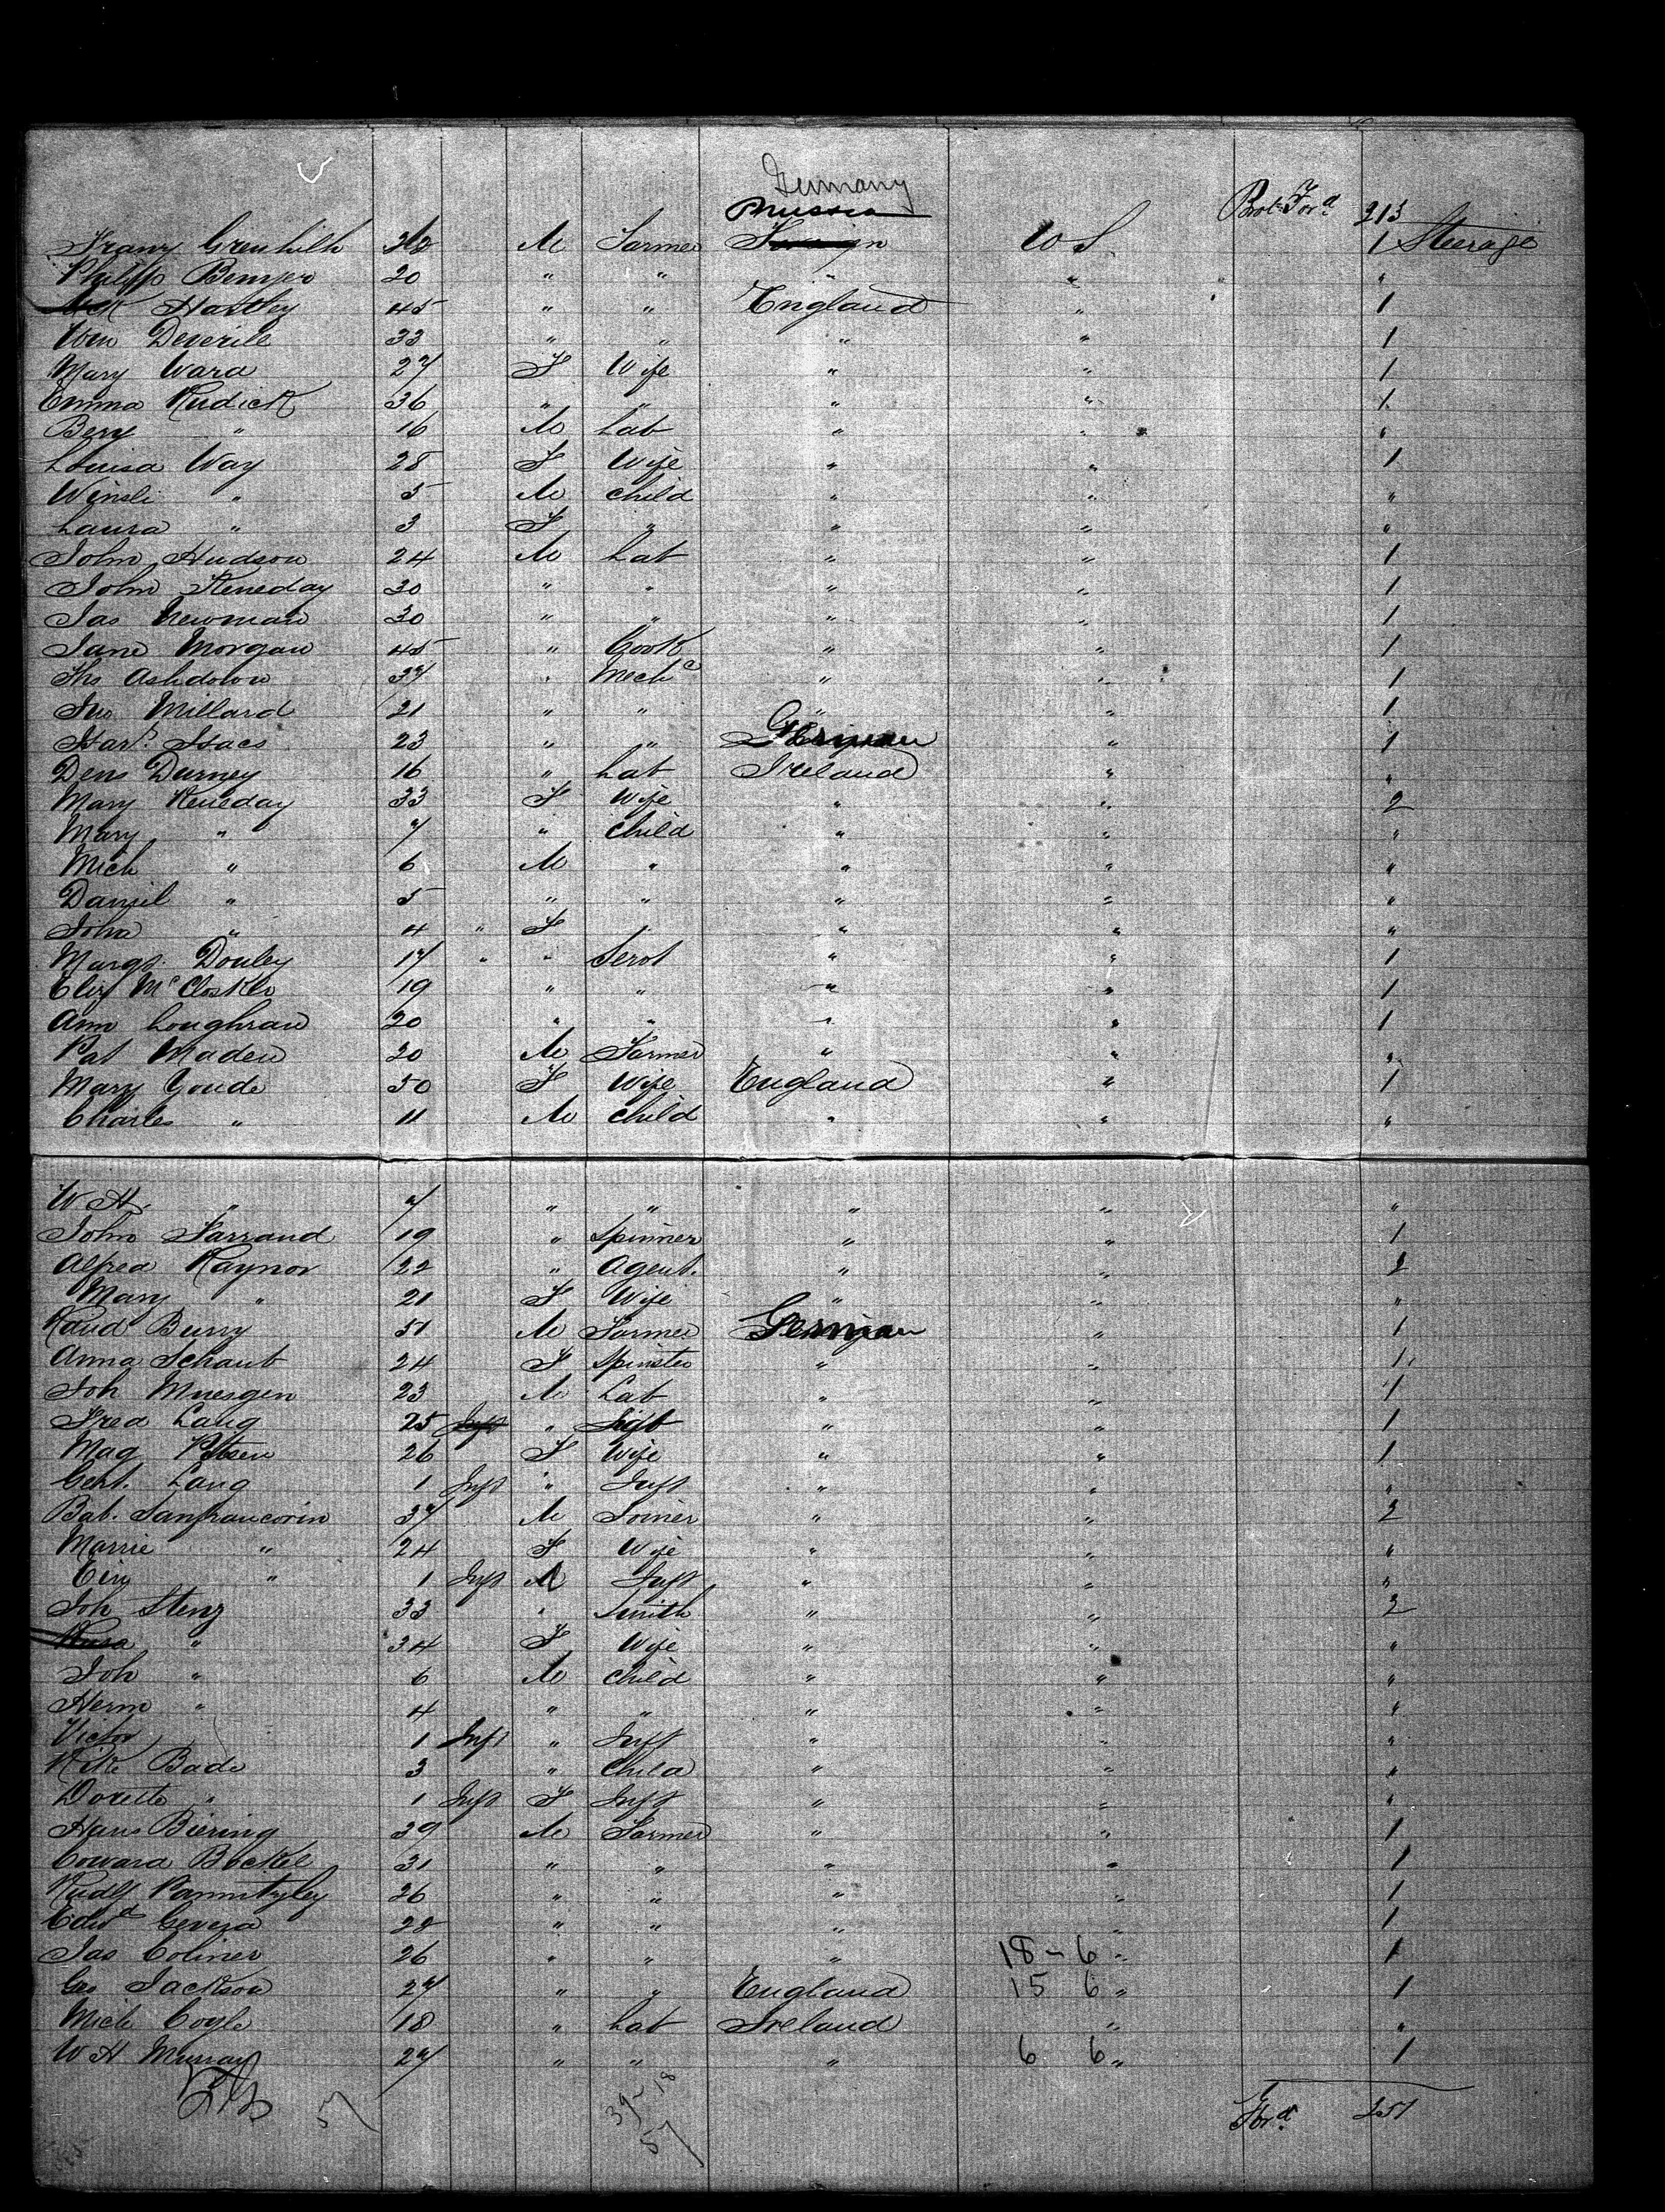 Germany
Prussia Brot Ford 213
Franz 32 M Farmer U S 1 Steerage
Philipp 20 " " " " "
Hartley 45 " " England " 1
Wm Deverill 33 " " " " 1
Mary Ward 27 F Wife " " 1
Emma Rudick 36 " " " " 1
Benj " 16 M Lab " " "
Louisa Way 28 F Wife " " 1
" 5 M Child " " "
Laura " 3 F " " " "
John Hudson 24 M Lab " " 1
John Keneday 30 " " " " 1
Jas Newman 30 " " " " 1
Jane Morgan 45 " Cook " " 1
Ths Ashdown 37 " Mechc " " 1
Jno Millard 21 " " " " 1
Isacs 23 " " German " 1
Dens Durney 16 " Lab Ireland " "
Mary Keneday 33 F Wife " " 2
Mary " 7 " Child " " "
Mich " 6 M " " " "
Daniel " 5 " " " " "
" 4 " F " " " "
Margt Donley 17 " " Servt " " 1
Eliz McCloskle 19 " " " " 1
Ann Loughran 20 " " " " 1
Pat Maden 20 M Farmer " " "
Mary Goude 50 F Wife England " 1
Charles " 11 M Child " " "
W H " 7 " " " " "
John Farrand 19 " Spinner " " 1
Alfred Raynor 22 " Agent. " " 2
Mary " 21 F Wife " " "
Burry 51 M Farmer German " 1
Anna Schaub 24 F Spinster " " 1
Joh Muesgen 23 M Lab " " 1
Fred Lang 25 " " " 1
Mag 26 F Wife " " 1
Lang 1 Inft " Inft " " "
Bab. 37 M Joiner " " 2
Marrie " 24 F Wife " " "
" 1 Inft M Inft " " "
Joh Stenz 33 " Smith " " 2
" 34 F Wife " " "
Joh " 6 M Child " " "
Herm " 4 " " " " "
Victor " 1 Inft " Inft " " "
Bade 3 " Child " " "
Dorette " 1 Inft F Inft " " "
Hans Biering 39 M Farmer " " 1
Bockel 31 " " " " 1
Rudlf 26 " " " " 1
Edwd Gevera 28 " " " " 1
Jas Coliner 26 " " " 18 - 6 " 1
Geo Jackson 27 " " England 15 6 " 1
Mich Coyle 18 " Lab Ireland " "
W H Murray 27 " " " 6 6 " 1
57 39 - 18 Ford 251
57